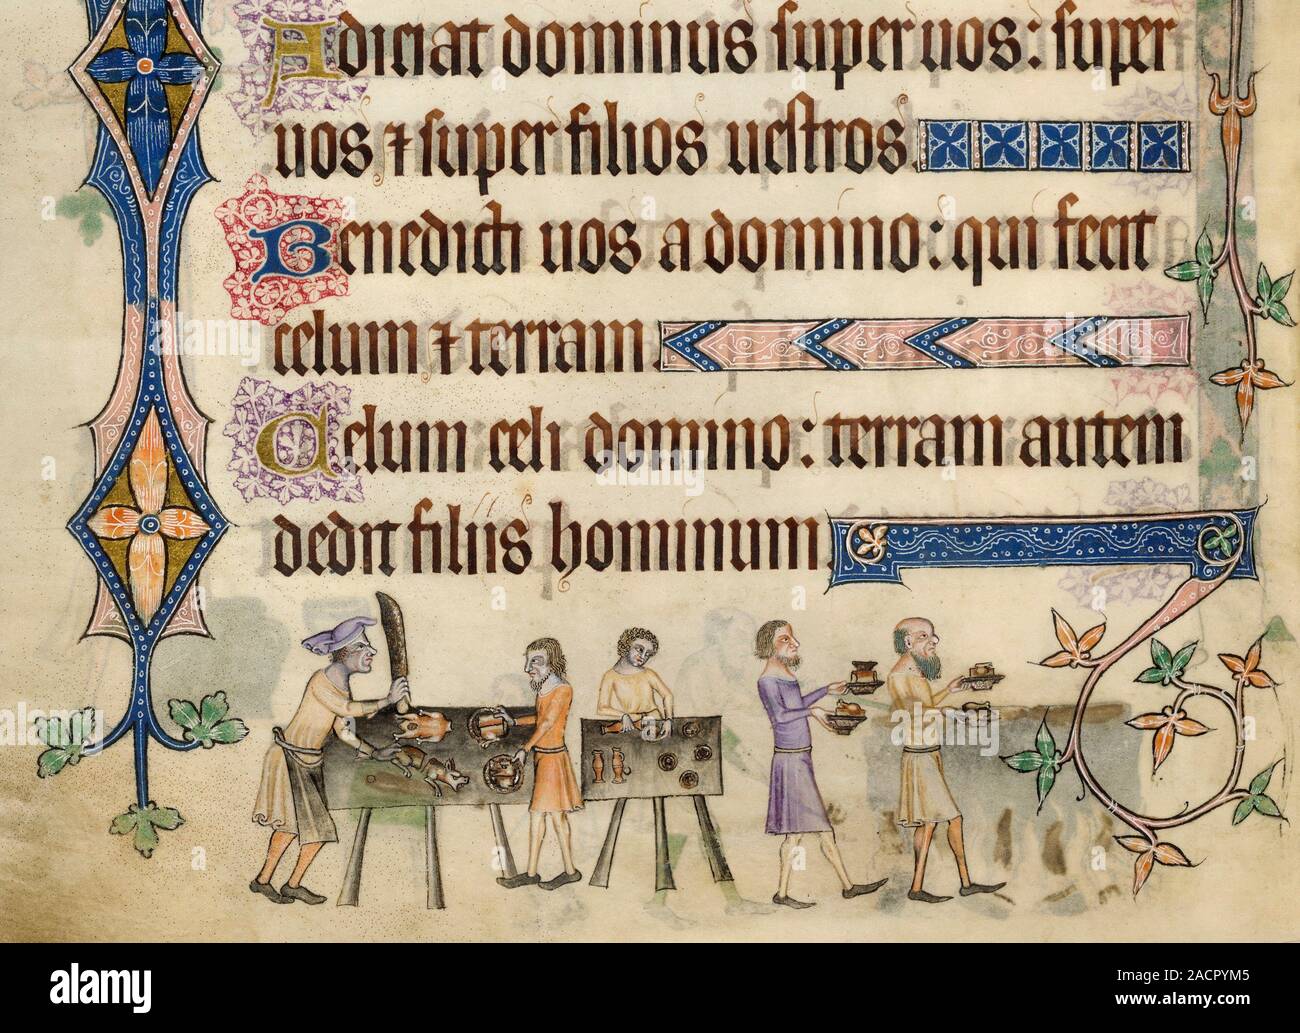 Adiciat dominus super uos: super
uos ⁊ super filios uestros
Benedicti uos a domino: qui fecit
celum ⁊ terram.
Celum celi domino: terram autem
dedit filiis hominum
alamy
Image ID: 2ACPYM5
www.alamy.com